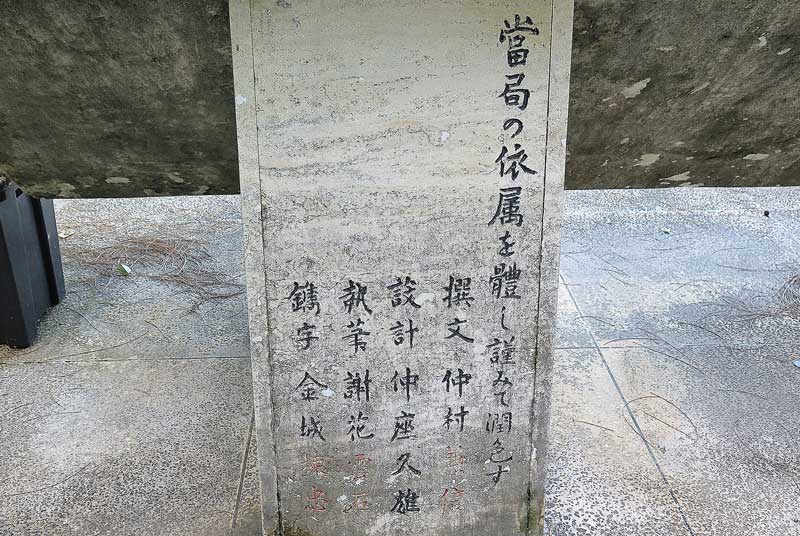 當局の依属を體し謹みて潤色す
撰文 仲村
設計 仲座久雄
執筆 謝花雲石
鐫字 金城